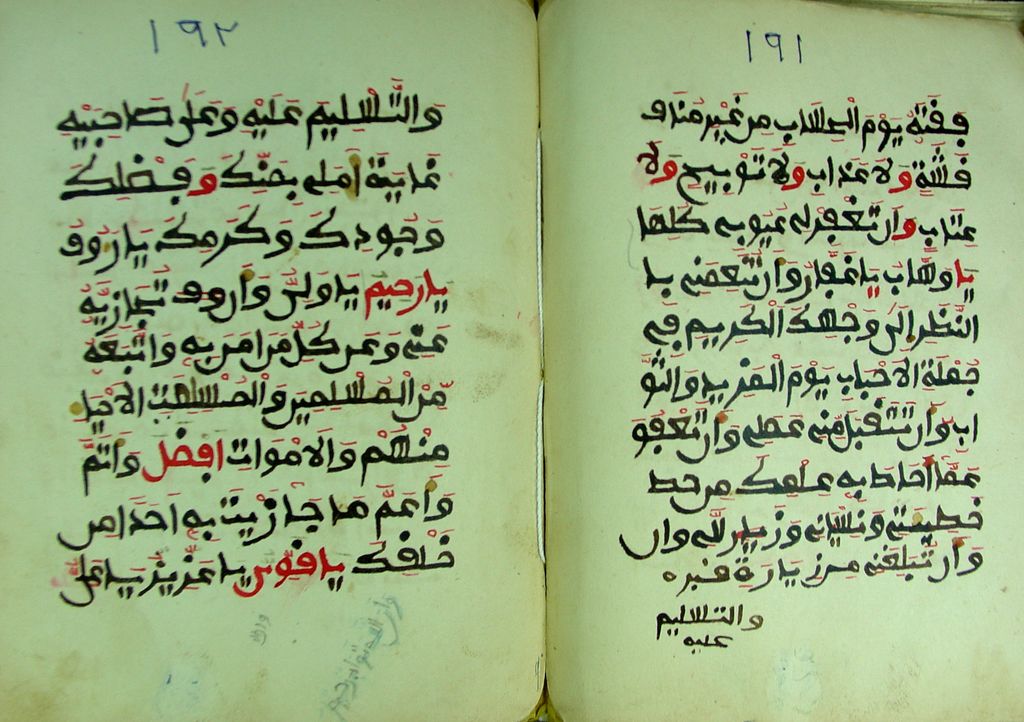 ١٩١
فقته يوم الحساب من غير مناق
قشة ولا عذاب ولا توبيخ ولا
عتاب وان تغفر لي عيوبي كلها
يا وهاب يا غفار وان تنعمني با
النظر الى وجهك الكريم في
جملة الاحباب يوم المزيد والثو
اب وان تتقبل مني عملي وان تعفو
عما احاط به علمك من خط
خطيئتي ونسياني وزللي وان
وان تبلغني من زيارة قبره
والتسليم
عليه
١٩٢
والتسليم عليه وعلى صاحبيه
غاية املي بمنك وفضلك
وجودك وكرمك يا روف
يا رحيم يا ولي وان تجازيه
عني وعن كل من امن به واتبعه
من المسلمين والمسلمت الاحيا
منهم والاموات افضل واتم
واعم ما جازيت به احدا من
خلقك يا قوي يا عزيز يا علي